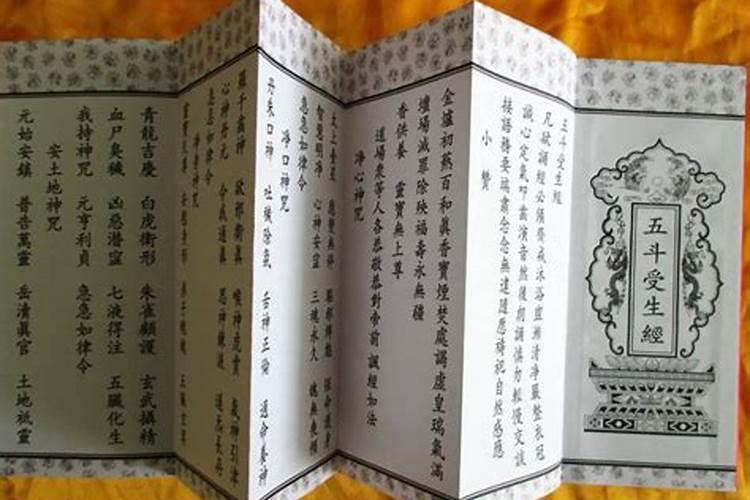 五斗受生經
五斗受生經
凡欲誦經必須齊戒沐浴 清淨嚴整衣冠
誠心定氣叩齒演音然後朗誦慎勿輕慢交談
接語務要端肅念念無違隨愿禱祀自然感應
小贊
金爐初爇百和眞香寶煙焚處謁虛皇瑞氣滿
壇場滅罪除殃福壽永無疆
香供養 靈寶無上尊
道場衆等人各恭敬恭對帝前 誦經如法
淨心神咒
太上台星 應變無停
智慧明淨 心神安寧 三魂永久 魄無喪傾
急急如律令
淨口神咒
丹朱口神 吐穢除氛 舌神正倫 通命養神
羅千齒神 却邪衛眞 喉神虎賁 氣神引津
心神丹元 令我通眞 思神鍊液 道氣長存
急急如律令
淨身神咒
青龍吉慶 白虎衛形 朱雀顧護 玄武攝精
血尸臭穢 凶惡潛 七液得注 五臟化生
我持神咒 元亨利貞 急急如律令
安土地神咒
元始安鎮 普告萬靈 岳瀆眞官 土地祗靈